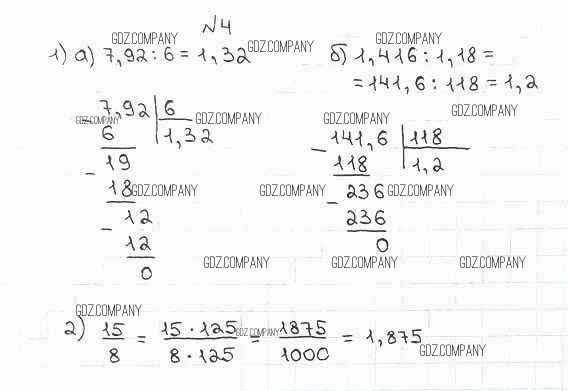 №4
GDZ.COMPANY GDZ.COMPANY
1) а) 7,92 : 6 = 1,32 GDZ.COMPANY б) 1,416 : 1,18 =
= 141,6 : 118 = 1,2
7,92 | 6
GDZ.COMPANY GDZ.COMPANY GDZ.COMPANY GDZ.COMPANY
6 1,32
141,6 | 118
- 19
- 118 1,2
18 GDZ.COMPANY GDZ.COMPANY 236 GDZ.COMPANY
- 12 - 236
12 0
0 GDZ.COMPANY GDZ.COMPANY GDZ.COMPANY
GDZ.COMPANY
2) 15/8 = 15 · 125/8 · 125 = 1875/1000 = 1,875
GDZ.COMPANY GDZ.COMPANY